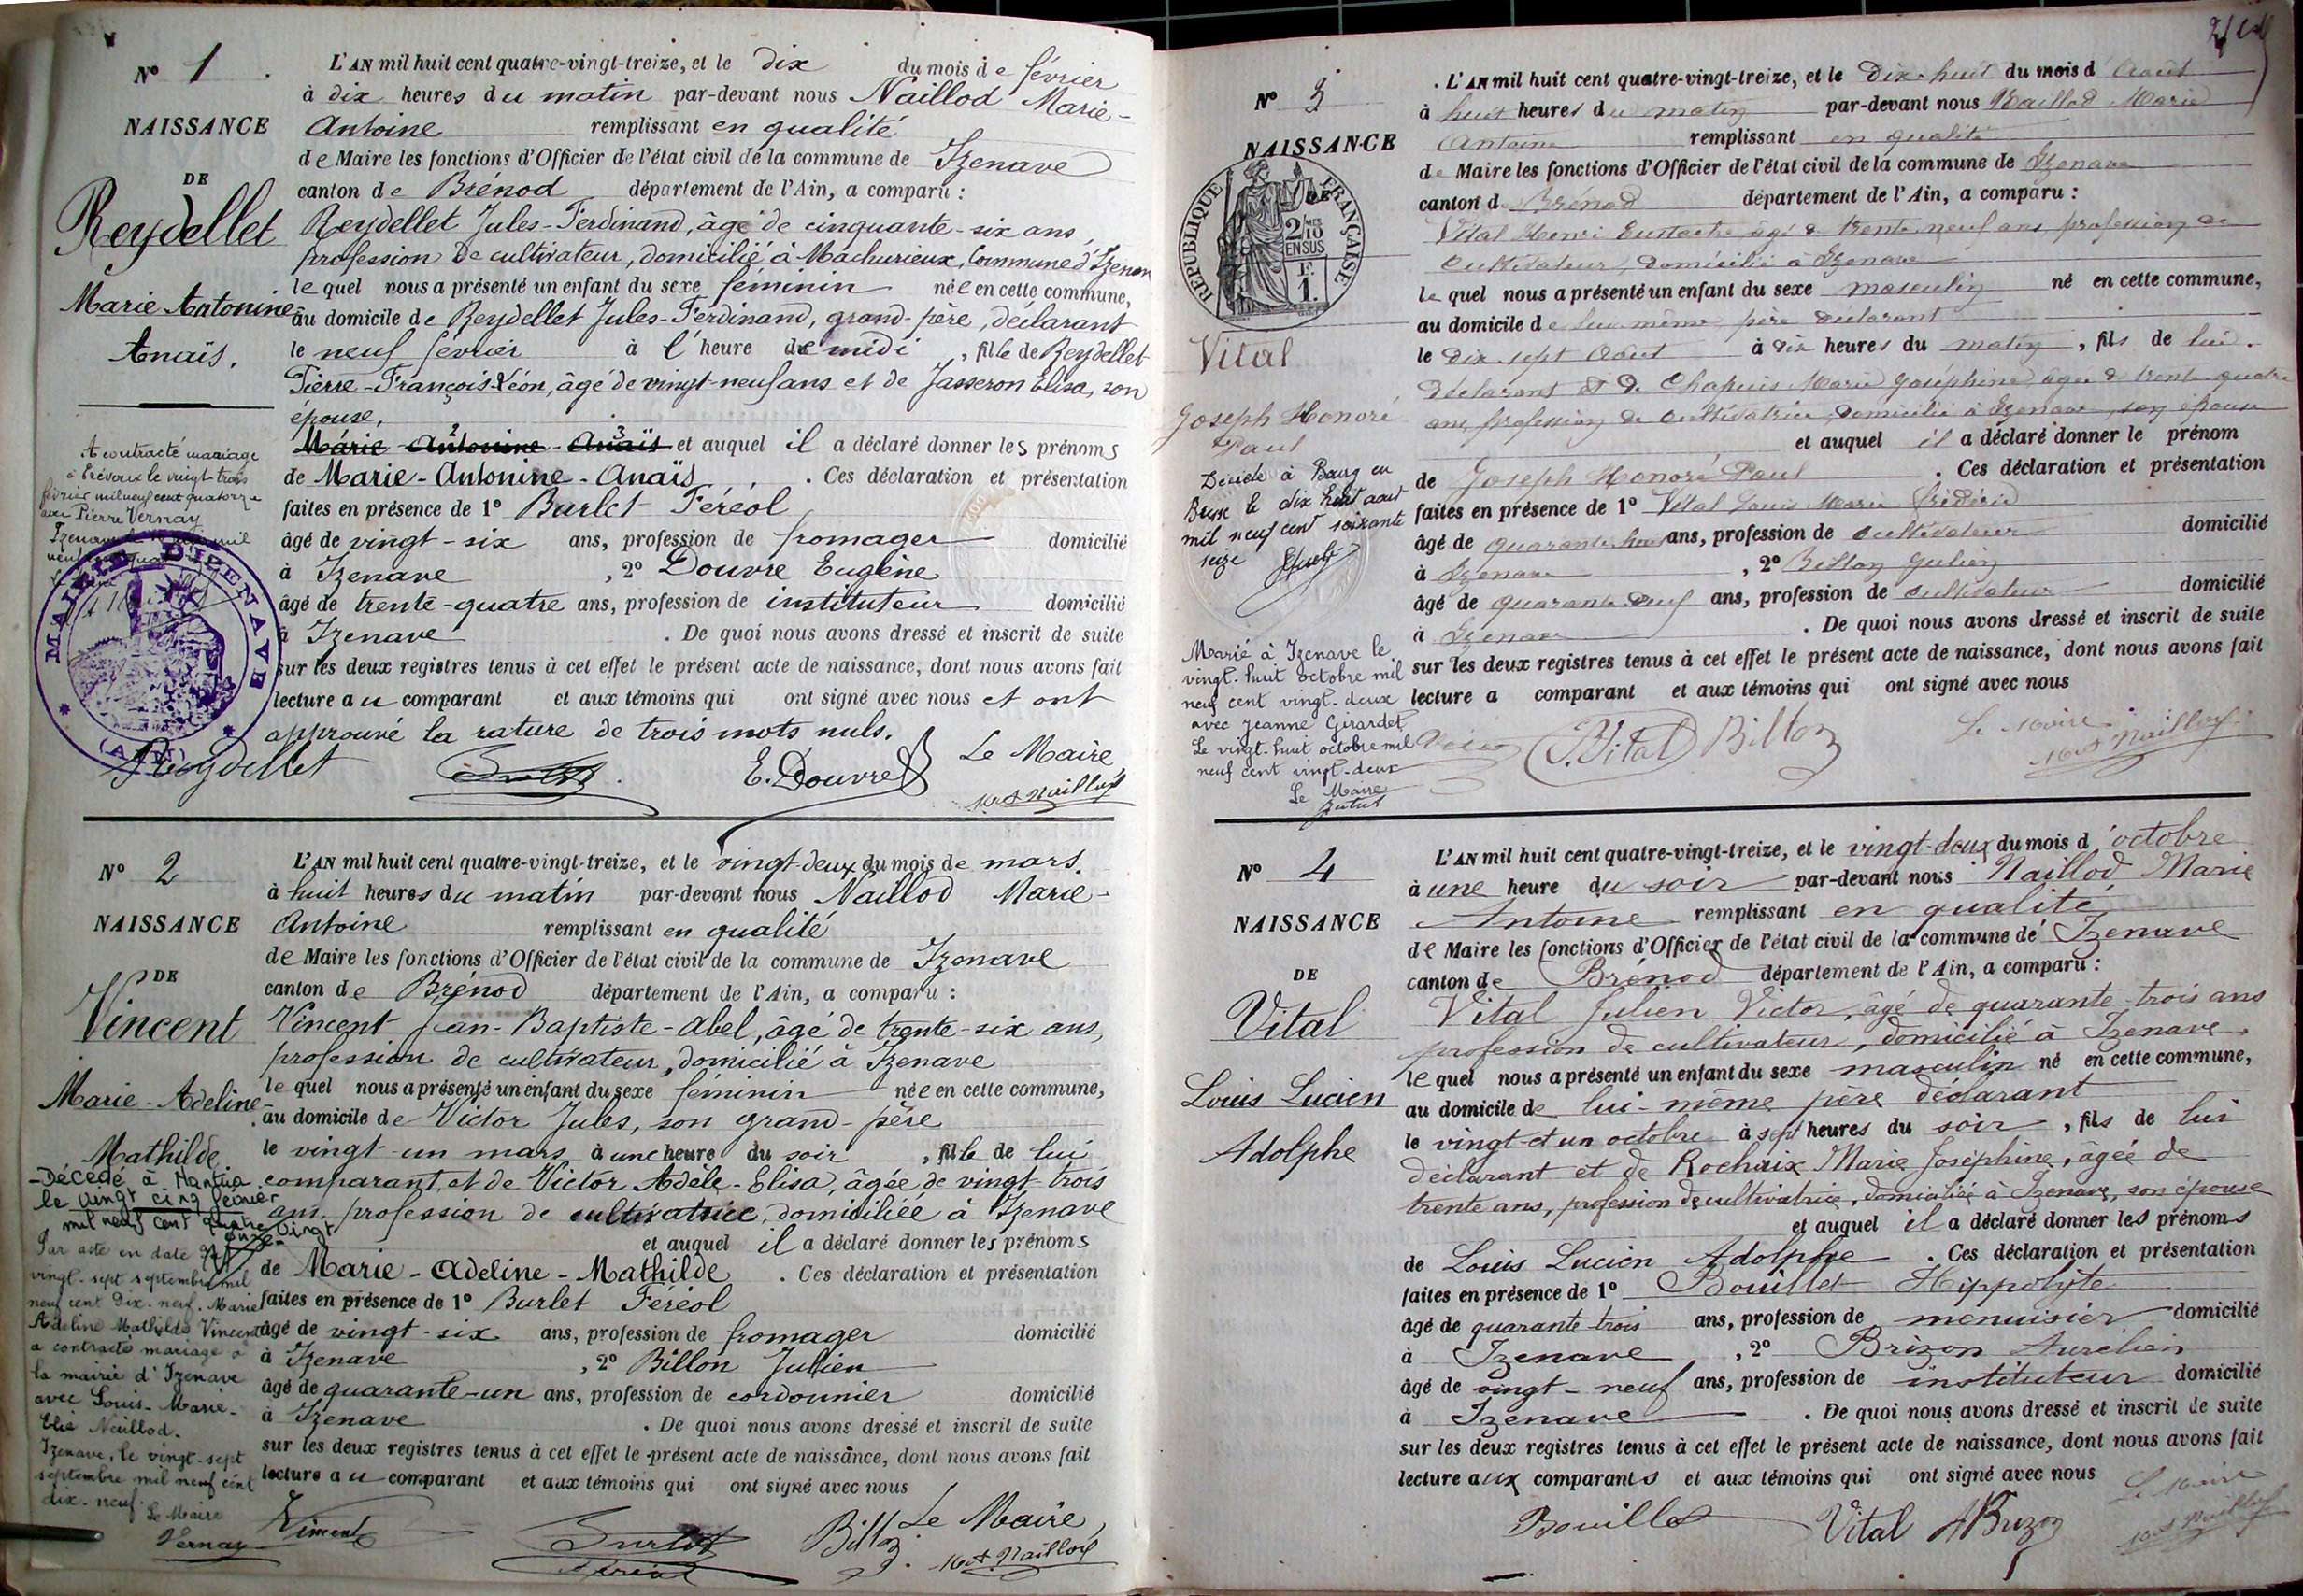 Nº 1
NAISSANCE
DE
Reydellet
Marie Antonine
Anaïs.
A contracté mariage
à Trévoux le vingt-trois
février mil neuf cent quatorze
avec Pierre Vernay
MAIRIE D'IZENAVE
(AIN)
L'AN mil huit cent quatre-vingt-treize, et le dix du mois de février
à dix heures du matin par-devant nous Naillod Marie-
Antoine remplissant en qualité
de Maire les fonctions d'Officier de l'état civil de la commune de Izenave
canton de Brénod département de l'Ain, a comparu :
Reydellet Jules-Ferdinand, âgé de cinquante-six ans,
profession de cultivateur, domicilié à Machurieux, Commune d'Izenave
lequel nous a présenté un enfant du sexe féminin née en cette commune,
au domicile de Reydellet Jules-Ferdinand, grand-père, déclarant
le neuf février à l'heure de midi, fille de Reydellet
Pierre-François-Léon, âgé de vingt-neuf ans et de Jasseron Elisa, son
épouse,
Marie Antonine Anaïs et auquel il a déclaré donner les prénoms
de Marie-Antonine-Anaïs. Ces déclaration et présentation
faites en présence de 1º Burlet Féréol
âgé de vingt-six ans, profession de fromager domicilié
à Izenave, 2º Douvre Eugène
âgé de trente-quatre ans, profession de instituteur domicilié
à Izenave. De quoi nous avons dressé et inscrit de suite
sur les deux registres tenus à cet effet le présent acte de naissance, dont nous avons fait
lecture au comparant et aux témoins qui ont signé avec nous et ont
approuvé la rature de trois mots nuls.
Reydellet E. Douvre Le Maire
Nº 2
NAISSANCE
DE
Vincent
Marie-Adeline-
Mathilde
-Décédé à Nantua
le vingt cinq février
mil neuf cent quatre vingt
onze-
Par acte en date du
vingt-sept septembre mil
neuf cent dix-neuf. Marie
Adeline Mathilde Vincent
a contracté mariage à
la mairie d'Izenave
avec Louis-Marie-
Elie Naillod.
Izenave, le vingt-sept
septembre mil neuf cent
dix-neuf.
Le Maire
Vernay
L'AN mil huit cent quatre-vingt-treize, et le vingt-deux du mois de mars.
à huit heures du matin par-devant nous Naillod Marie-
Antoine remplissant en qualité
de Maire les fonctions d'Officier de l'état civil de la commune de Izenave
canton de Brénod département de l'Ain, a comparu :
Vincent Jean-Baptiste-Abel, âgé de trente-six ans,
profession de cultivateur, domicilié à Izenave
lequel nous a présenté un enfant du sexe féminin née en cette commune,
au domicile de Victor Jules, son grand-père
le vingt-un mars à une heure du soir, fille de lui
comparant, et de Victor Adèle-Elisa, âgée de vingt-trois
ans, profession de cultivatrice, domiciliée à Izenave
et auquel il a déclaré donner les prénoms
de Marie-Adeline-Mathilde. Ces déclaration et présentation
faites en présence de 1º Burlet Féréol
âgé de vingt-six ans, profession de fromager domicilié
à Izenave, 2º Billon Julien
âgé de quarante-un ans, profession de cordonnier domicilié
à Izenave. De quoi nous avons dressé et inscrit de suite
sur les deux registres tenus à cet effet le présent acte de naissance, dont nous avons fait
lecture au comparant et aux témoins qui ont signé avec nous
Vincent Burlet Féréol Billon Le Maire,
Nº 3
NAISSANCE
DE
RÉPUBLIQUE FRANÇAISE
2/10 EN SUS
F. 1.
Vital
Joseph Honoré
Paul
Décédé à Bourg en
Bresse le dix huit aout
mil neuf cent soixante
seize
Marié à Izenave le
vingt-huit octobre mil
neuf cent vingt-deux
avec Jeanne Girardet
Le vingt-huit octobre mil
neuf cent vingt-deux
Le Maire
L'AN mil huit cent quatre-vingt-treize, et le dix-huit du mois d'Aout
à huit heures du matin par-devant nous Naillod Marie
Antoine remplissant en qualité
de Maire les fonctions d'Officier de l'état civil de la commune de Izenave
canton d Brénod département de l'Ain, a comparu :
Vital Henri Eustache âgé de trente neuf ans, profession de
cultivateur, domicilié à Izenave
lequel nous a présenté un enfant du sexe masculin né en cette commune,
au domicile de lui même père déclarant
le dix sept Aout à dix heures du matin, fils de lui.
déclarant et de Chapuis Marie Joséphine âgée de trente quatre
ans, profession de cultivatrice, domicilié à Izenave, son épouse
et auquel il a déclaré donner le prénom
de Joseph Honoré Paul. Ces déclaration et présentation
faites en présence de 1º Vital Louis Marie Frédéric
âgé de quarante huit ans, profession de cultivateur domicilié
à Izenave, 2º Billon Julien
âgé de quarante deuf ans, profession de cultivateur domicilié
à Izenave. De quoi nous avons dressé et inscrit de suite
sur les deux registres tenus à cet effet le présent acte de naissance, dont nous avons fait
lecture a comparant et aux témoins qui ont signé avec nous
Vital Billon Le Maire
Nº 4
NAISSANCE
DE
Vital
Louis Lucien
Adolphe
L'AN mil huit cent quatre-vingt-treize, et le vingt-deux du mois d'octobre
à une heure du soir par-devant nous Naillod Marie
Antoine remplissant en qualité
de Maire les fonctions d'Officier de l'état civil de la commune de Izenave
canton de Brénod département de l'Ain, a comparu :
Vital Julien Victor, âgé de quarante-trois ans
profession de cultivateur, domicilié à Izenave.
lequel nous a présenté un enfant du sexe masculin né en cette commune,
au domicile de lui-même père déclarant
le vingt-et un octobre à sept heures du soir, fils de lui
déclarant et de Rochaix Marie Joséphine, âgée de
trente ans, profession de cultivatrice, domiciliée à Izenave, son épouse
et auquel il a déclaré donner les prénoms
de Louis Lucien Adolphe. Ces déclaration et présentation
faites en présence de 1º Bouillet Hippolyte
âgé de quarante trois ans, profession de menuisier domicilié
à Izenave, 2º Brizon Aurélien
âgé de vingt-neuf ans, profession de instituteur domicilié
à Izenave. De quoi nous avons dressé et inscrit de suite
sur les deux registres tenus à cet effet le présent acte de naissance, dont nous avons fait
lecture aux comparants et aux témoins qui ont signé avec nous
Bouillet Vital ABrizon Le Maire